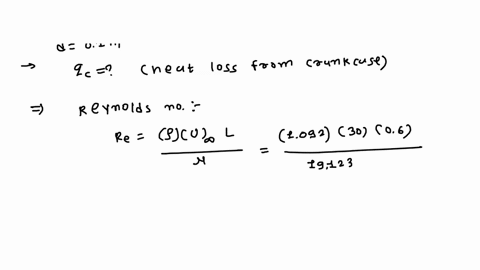 → q_c = ? (heat loss from crankcase)
⇒ Reynolds no. :-
Re = (ρ)(U)∞ L / μ = (1.092) (30) (0.6) / 19.123